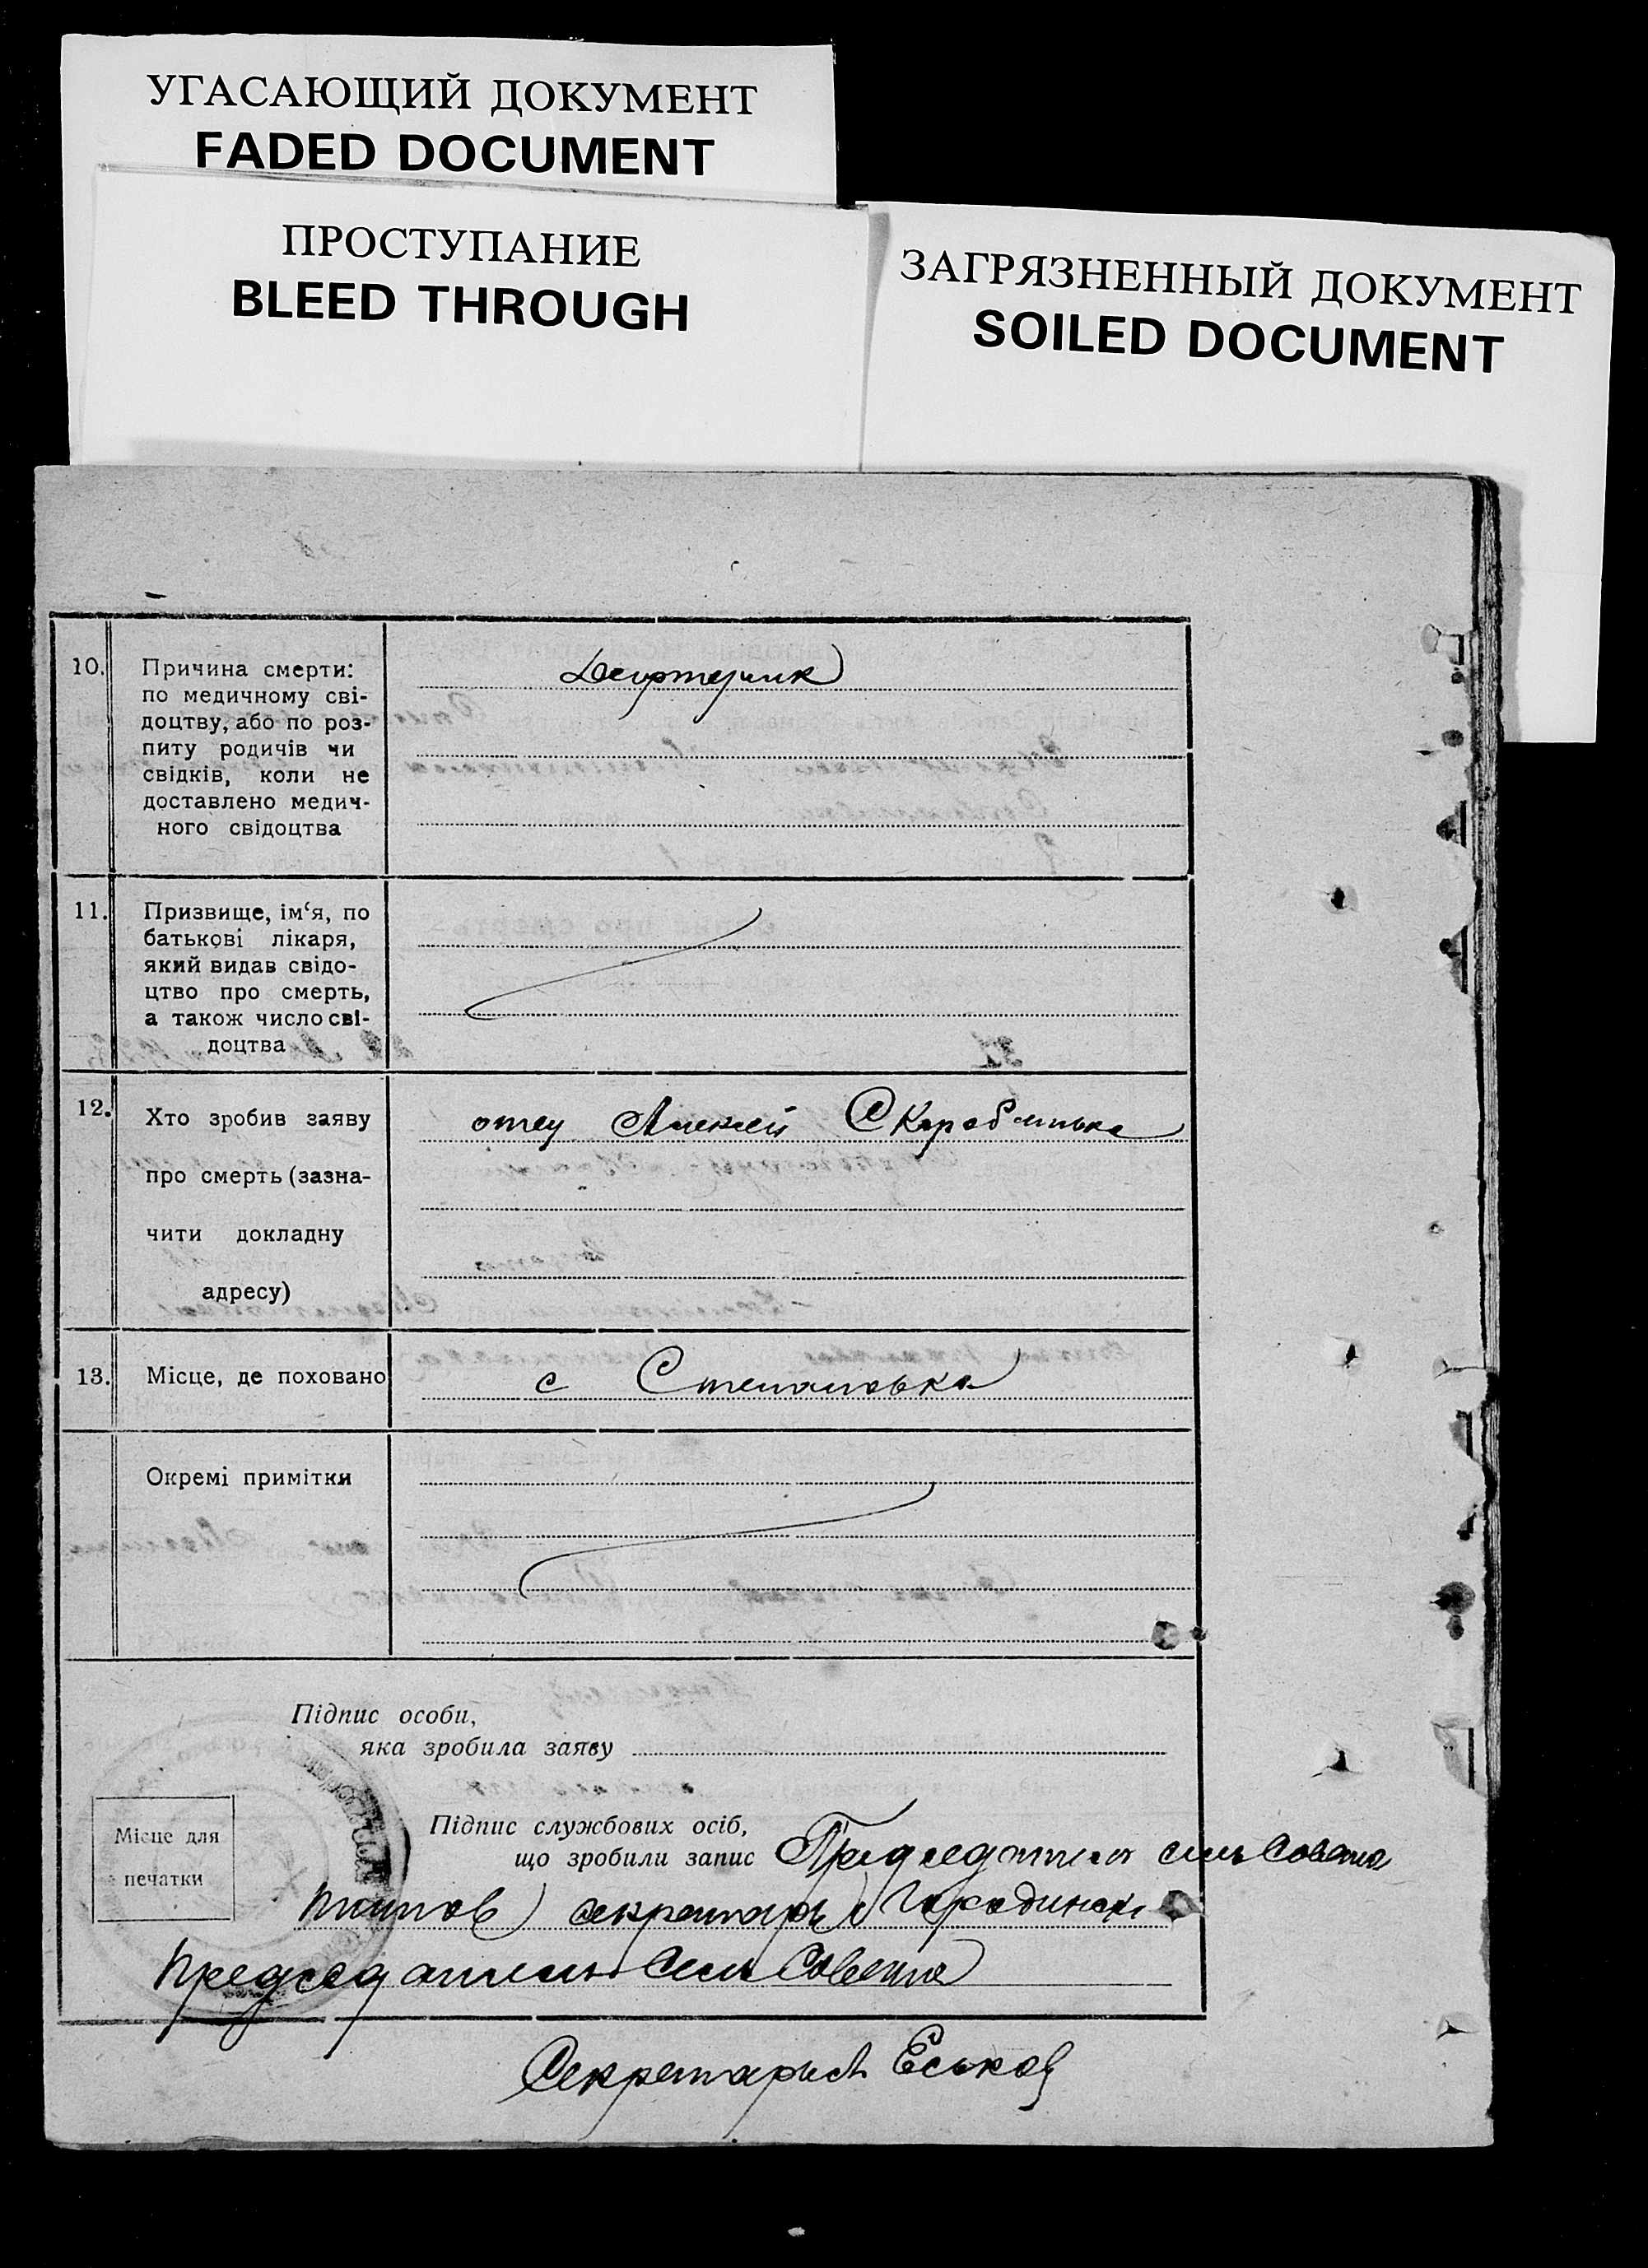 УГАСАЮЩИЙ ДОКУМЕНТ
FADED DOCUMENT
ПРОСТУПАНИЕ
BLEED THROUGH
ЗАГРЯЗНЕННЫЙ ДОКУМЕНТ
SOILED DOCUMENT
10.
Причина смерти:
по медичному сві-
доцтву, або по роз-
питу родичів чи
свідків, коли не
доставлено медич-
ного свідоцтва
11.
Призвище, ім‘я, по
батькові лікаря,
який видав свідо-
цтво про смерть,
а також число сві-
доцтва
12.
Хто зробив заяву
про смерть (зазна-
чити докладну
адресу)
отец Алексей
13.
Місце, де поховано
с Степановка
Окремі примітки
Підпис особи,
яка зробила заяву
Місце для
печатки
Підпис службових осіб,
що зробили запис
Председатель сельсовета
секретарь
Председатель Сельсовета
Секретарь Еськов